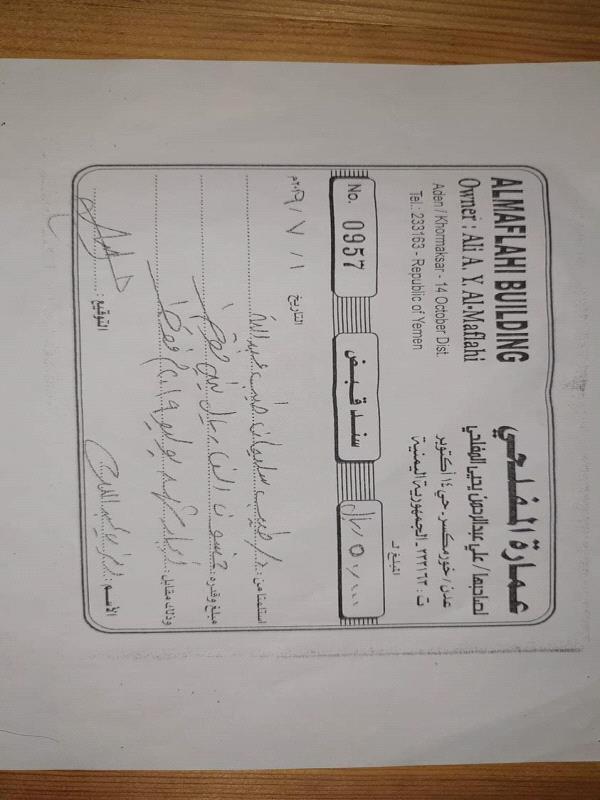 ALMAFLAHI BUILDING
Owner : Ali A. Y. Al-Maflahi
Aden / Khormaksar - 14 October Dist.
Tel.: 233163 - Republic of Yemen
عمارة المفلحي
لصاحبها / علي عبدالرحمن يحيى المفلحي
عدن / خورمكسر - حي ١٤ أكتوبر
ت : ٢٣٣١٦٣ - الجمهورية اليمنية
المبلغ لـ
No. 0957
سند قبض
ريال
التاريخ ١ / ٧ / ٢٠١٩م
استلمنا من : سليمان
مبلغ وقدره : خمسون الف ريال يمني فقط
وذلك مقابل : ايجار شهر يوليو فقط
الأسم :
التوقيع :